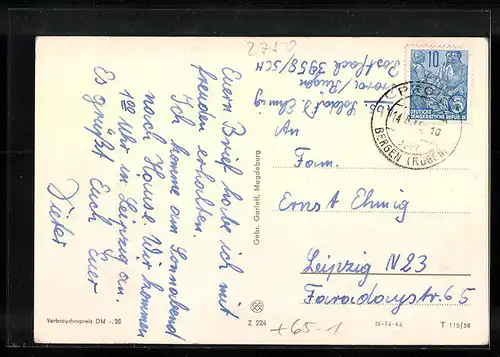 2750
Euern Brief habe ich mit
Freuden erhalten.
Ich komme am Sonnabend
nach Hause. Wir kommen
1⁰⁰ Uhr in Leipzig an.
Es grüßt Euch Euer
Dieter
Verbraucherpreis DM -.20
Gebr. Garloff, Magdeburg
Abs. Soldat D. Ehmig
Prora / Rügen
Postfach 3958/5CH
10
DEUTSCHE
DEMOKRATISCHE REPUBLIK
PRORA
BERGEN (RÜGEN)
An
Fam.
Ernst Ehmig
Leipzig N23
Faradaystr. 65
Z 224
+65-1
IV-14-45
T 115/58